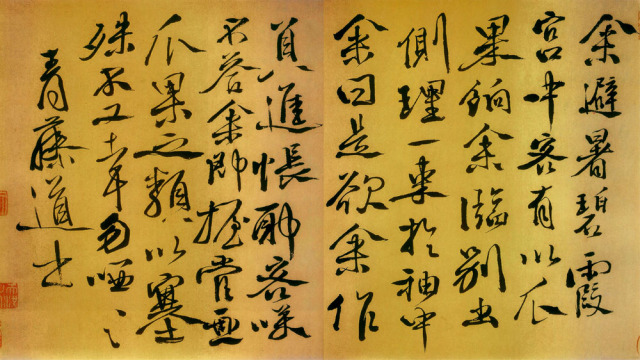 余避暑碧霞
宮中客有以瓜
果餉余臨別出
側理一束於袖中
余曰是欲余作
進帳耶客咲
不答余即握管画
瓜果之類以塞
殊不工幸哂
青藤道士